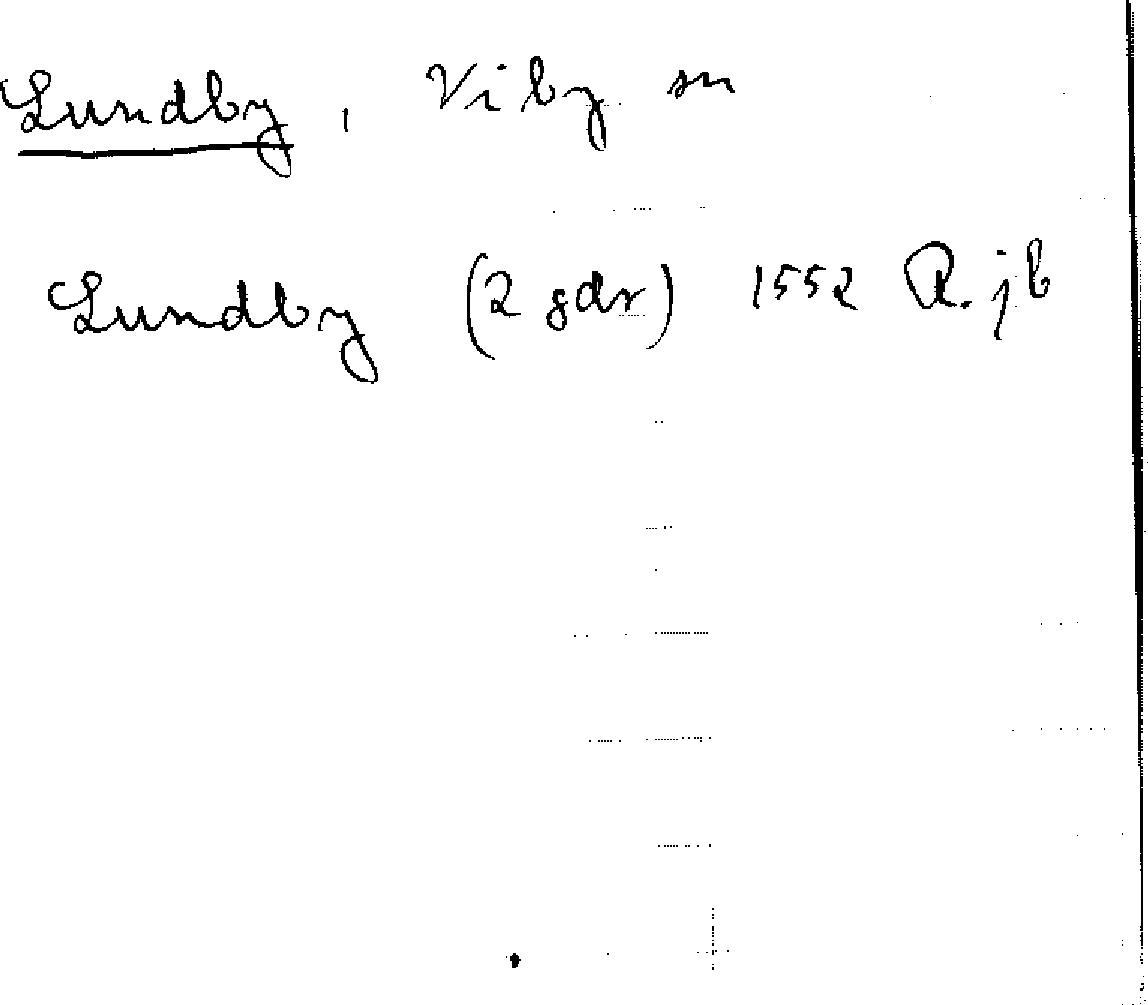 Lundby, Viby sn
Lundby (2 gdr) 1552 R. jb